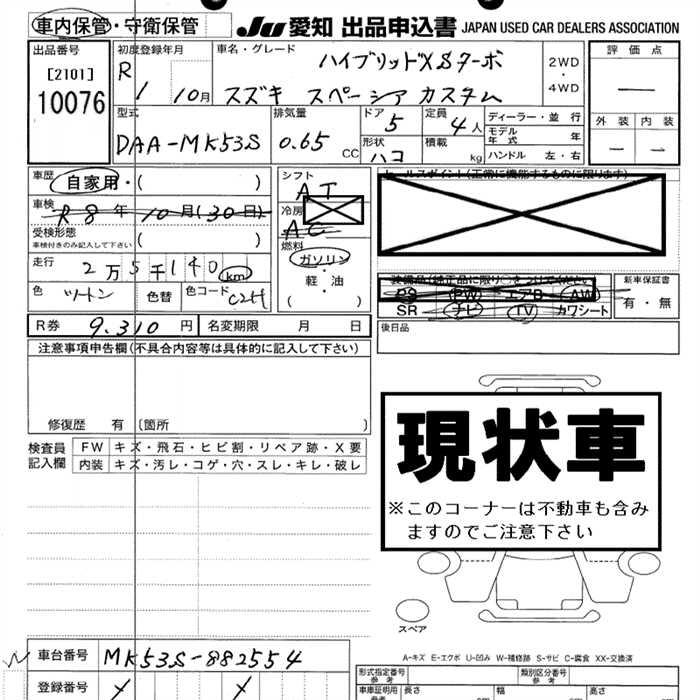 車内保管・守衛保管
JU 愛知 出品申込書 JAPAN USED CAR DEALERS ASSOCIATION
出品番号
[2101]
10076
初度登録年月
R 1 10月
車名・グレード
ハイブリッドXSターボ
スズキ スペーシア カスタム
2WD
・
4WD
評価点
—
外装 内装
— —
型式
DAA-MK53S
排気量
0.65 CC
ドア
5
形状
ハコ
定員
4人
積載
kg
ディーラー・並行
モデル年式 年
ハンドル 左・右
車歴
自家用・( )
車検
R8年10月(30日)
受検形態
車検付きのみ記入して下さい
( )
走行
2万5千140km
色 ツートン 色替 色コード C2H
シフト
AT
冷房
AC
燃料
ガソリン
・
軽・油
( )
セールスポイント(正常に機能するものに限ります)
装備品(純正品に限り○をつけてください)
PS PW エアB AW
SR ナビ TV カワシート
新車保証書
有・無
後日品
R券 9,310円 名変期限 月 日
注意事項申告欄(不具合内容等は具体的に記入して下さい)
修復歴 有 〔箇所 〕
検査員記入欄
FW キズ・飛石・ヒビ割・リペア跡・X要
内装 キズ・汚レ・コゲ・穴・スレ・キレ・破レ
現状車
※このコーナーは不動車も含み
ますのでご注意下さい
スペア
A-キズ E-エクボ U-凹み W-補修跡 S-サビ C-腐食 XX-交換済
車台番号 MK53S-882554
登録番号
形式指定番号
参考
類別区分番号
参考
車庫証明用
参考
長さ
幅
高さ